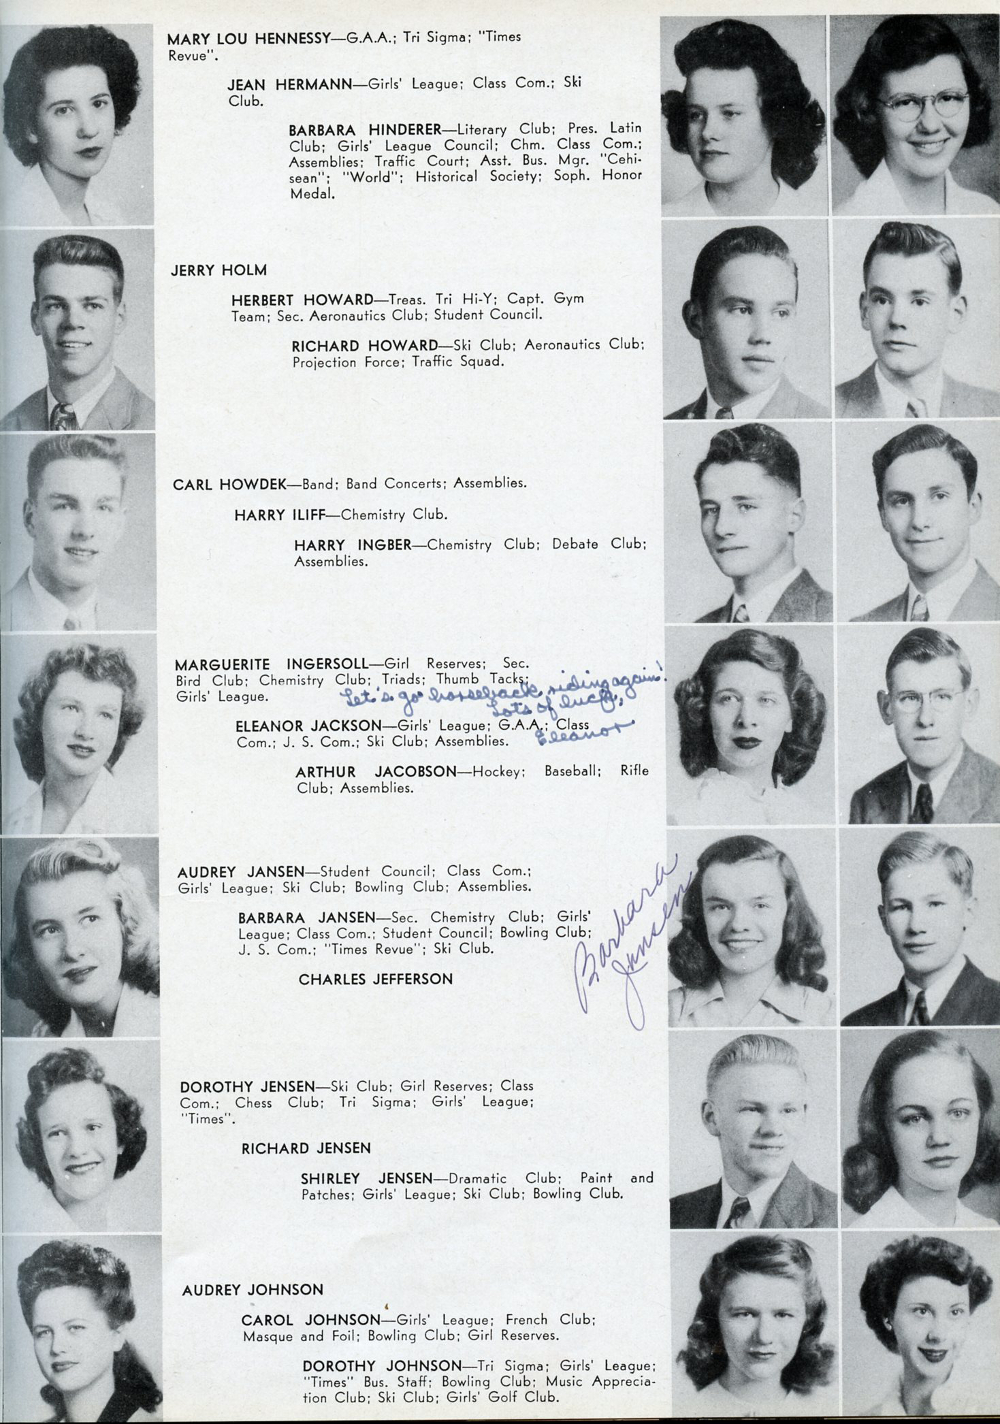 MARY LOU HENNESSY—G.A.A.; Tri Sigma; "Times
Revue".
JEAN HERMANN—Girls' League; Class Com.; Ski
Club.
BARBARA HINDERER—Literary Club; Pres. Latin
Club; Girls' League Council; Chm. Class Com.;
Assemblies; Traffic Court; Asst. Bus. Mgr. "Cehi-
sean"; "World"; Historical Society; Soph. Honor
Medal.
JERRY HOLM
HERBERT HOWARD—Treas. Tri Hi-Y; Capt. Gym
Team; Sec. Aeronautics Club; Student Council.
RICHARD HOWARD—Ski Club; Aeronautics Club;
Projection Force; Traffic Squad.
CARL HOWDEK—Band; Band Concerts; Assemblies.
HARRY ILIFF—Chemistry Club.
HARRY INGBER—Chemistry Club; Debate Club;
Assemblies.
MARGUERITE INGERSOLL—Girl Reserves; Sec.
Bird Club; Chemistry Club; Triads; Thumb Tacks;
Girls' League.
Let's go horseback riding again!
Lots of luck,
Eleanor
ELEANOR JACKSON—Girls' League; G.A.A.; Class
Com.; J. S. Com.; Ski Club; Assemblies.
ARTHUR JACOBSON—Hockey; Baseball; Rifle
Club; Assemblies.
AUDREY JANSEN—Student Council; Class Com.;
Girls' League; Ski Club; Bowling Club; Assemblies.
BARBARA JANSEN—Sec. Chemistry Club; Girls'
League; Class Com.; Student Council; Bowling Club;
J. S. Com.; "Times Revue"; Ski Club.
Barbara
Jansen
CHARLES JEFFERSON
DOROTHY JENSEN—Ski Club; Girl Reserves; Class
Com.; Chess Club; Tri Sigma; Girls' League;
"Times".
RICHARD JENSEN
SHIRLEY JENSEN—Dramatic Club; Paint and
Patches; Girls' League; Ski Club; Bowling Club.
AUDREY JOHNSON
CAROL JOHNSON—Girls' League; French Club;
Masque and Foil; Bowling Club; Girl Reserves.
DOROTHY JOHNSON—Tri Sigma; Girls' League;
"Times" Bus. Staff; Bowling Club; Music Apprecia-
tion Club; Ski Club; Girls' Golf Club.